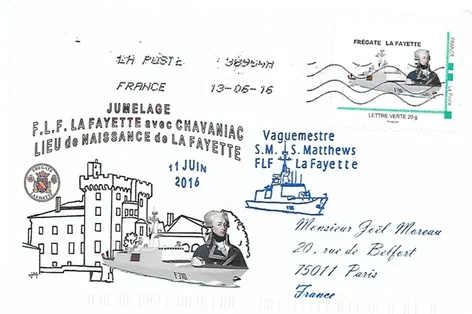 FRÉGATE LA FAYETTE
FRANCE
La Poste
LETTRE VERTE 20 g
LA POSTE 38964A
FRANCE 13-06-16
JUMELAGE
F.L.F. LA FAYETTE avec CHAVANIAC
LIEU de NAISSANCE de LA FAYETTE
11 JUIN
2016
FREGATE
LAFAYETTE
F710
Vaguemestre
S.M. S. Matthews
FLF La Fayette
Monsieur Joël Moreau
20, rue de Belfort
75011 Paris
France